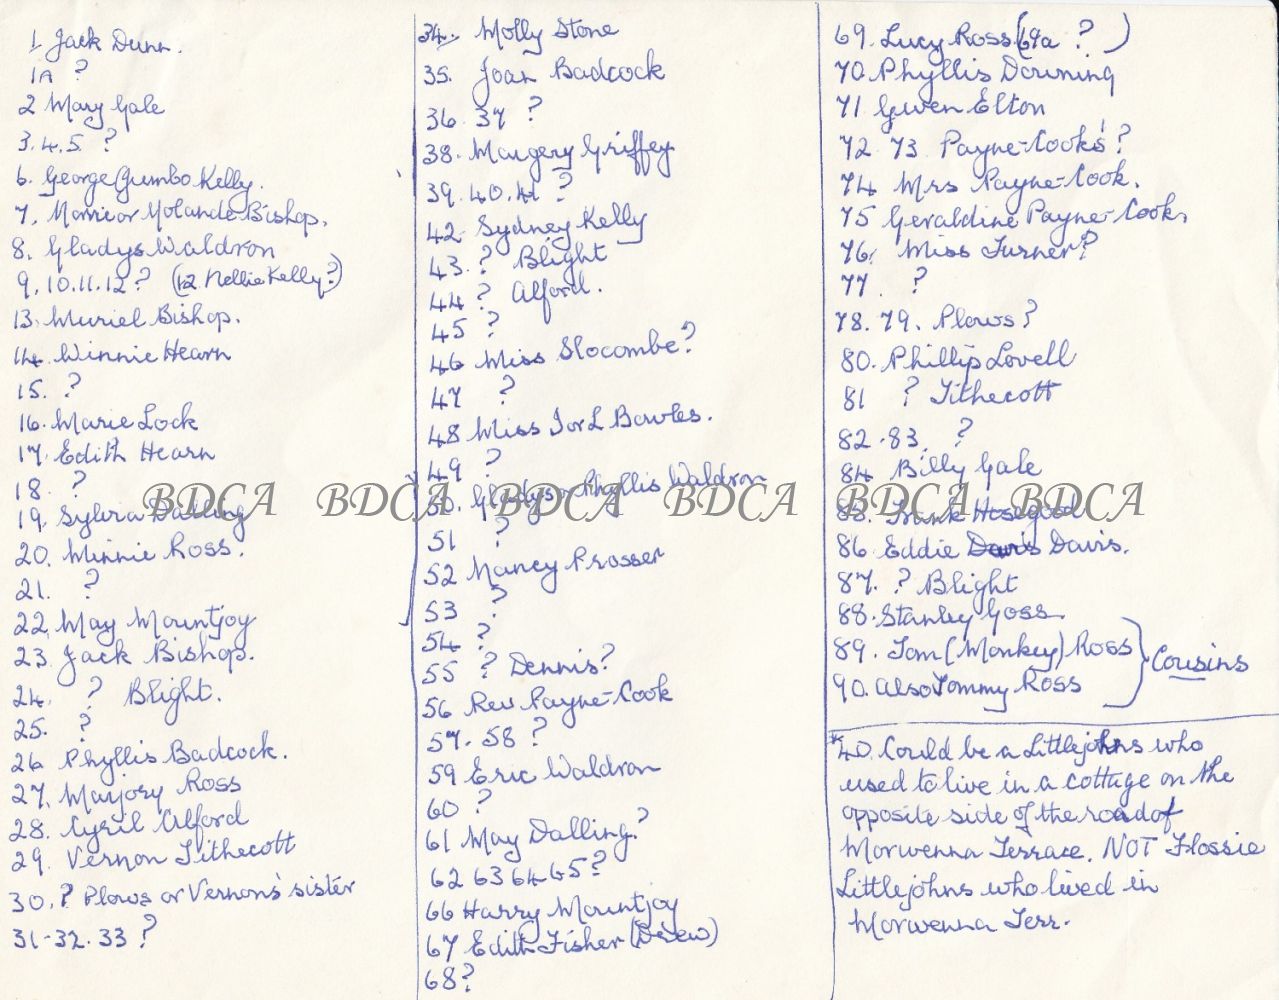 1 Jack Dunn.
1A ?
2 Mary Gale
3.4.5 ?
6. George Gumbo Kelly.
7. Morrie or Yolande Bishop.
8. Gladys Waldron
9.10.11.12 ? (12 Nellie Kelly?)
13. Muriel Bishop.
14. Winnie Hearn
15. ?
16. Marie Lock
17. Edith Hearn
18. ?
19. Sylvia Dalling
20. Minnie Ross.
21. ?
22. May Mountjoy
23. Jack Bishop.
24. ? Blight.
25. ?
26 Phyllis Badcock.
27. Marjory Ross
28. Cyril Alford
29. Vernon Tithecott
30. ? Plows or Vernon's sister
31-32.33 ?
34. Molly Stone
35. Joan Badcock
36. 37 ?
38. Margery Griffey
39.40.41 ?
42. Sydney Kelly
43. ? Blight
44 ? Alford.
45 ?
46 Miss Slocombe?
47 ?
48 Miss I or L Bowles.
49 ?
50. Gladys or Phyllis Waldron
51 ?
52 Nancy Prosser
53 ?
54 ?
55 ? Dennis?
56 Rev Payne-Cook
57.58 ?
59 Eric Waldron
60 ?
61 May Dalling?
62 63 64 65 ?
66 Harry Mountjoy
67 Edith Fisher (Drew)
68 ?
69. Lucy Ross (69a ? )
70. Phyllis Downing
71 Gwen Elton
72.73 Payne-Cooks'?
74 Mrs Payne-Cook.
75 Geraldine Payne-Cook.
76. Miss Turner?
77. ?
78.79. Plows?
80. Phillip Lovell
81 ? Tithecott
82.83. ?
84 Billy Gale
85. Frank Hosegood
86 Eddie Davis Davis.
87. ? Blight
88. Stanley Goss
89. Tom (Monkey) Ross
90. Also Tommy Ross
Cousins
*40. Could be a Littlejohns who
used to live in a cottage on the
opposite side of the road of
Morwenna Terrace. NOT Flossie
Littlejohns who lived in
Morwenna Terr.
BDCA BDCA BDCA BDCA BDCA BDCA